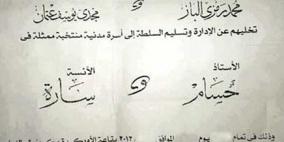 محمد رمزى الباز
مجدى يوسف عثمان
تخليهم عن الإدارة وتسليم السلطة إلى أسرة مدنية منتخبة ممثلة فى
الأستاذ
الآنسة
حسام
و
سارة
وذلك فى تمام
يوم
الموافق
٢٠١٢ بقاعة